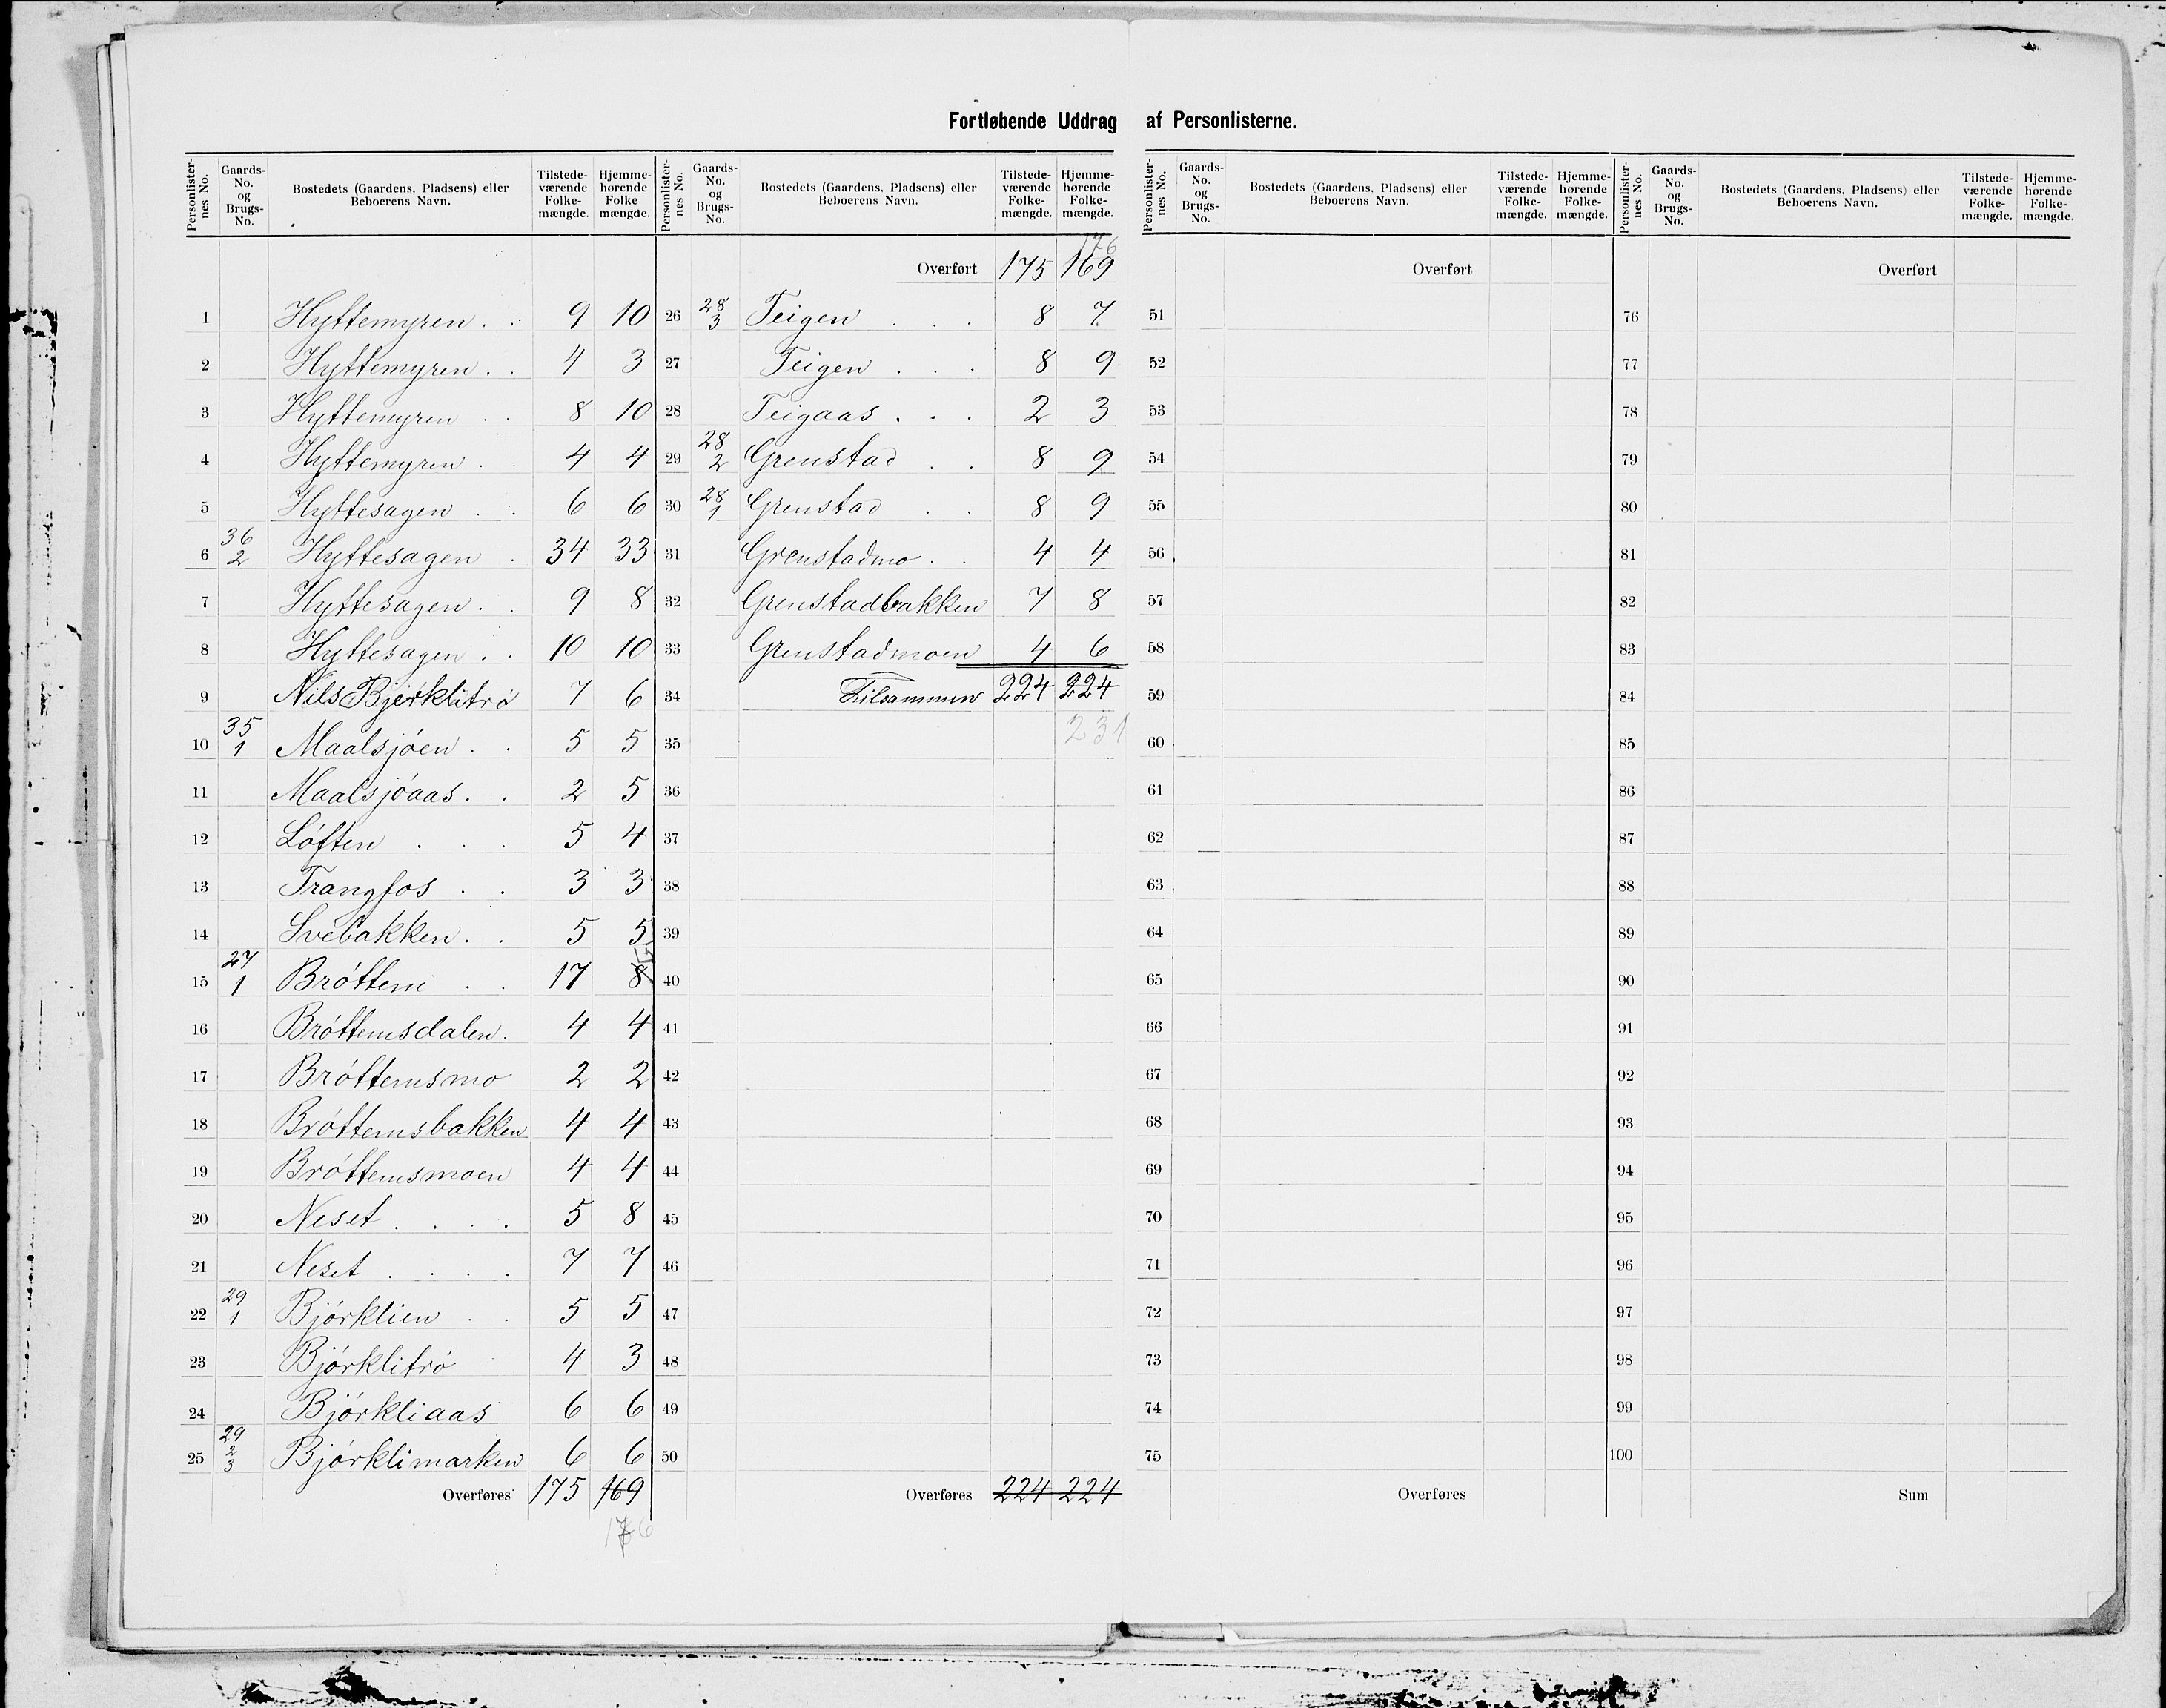 Fortløbende Uddrag af Personlisterne.
Personlisternes No. Gaards-No. og Brugs-No. Bostedets (Gaardens, Pladsens) eller Beboerens Navn. Tilstedeværende Folkemængde. Hjemmehørende Folke mængde.
1 Hyttemyren . . 9 10
2 Hyttemyren . . 4 3
3 Hyttemyren . . 8 10
4 Hyttemyren . . 4 4
5 Hyttesagen . . 6 6
6 36 2 Hyttesagen . 34 33
7 Hyttesagen . . 9 8
8 Hyttesagen . . 10 10
9 Nils Bjerklitrø 7 6
10 35 1 Maalsjóen . . 5 5
11 Maalsjóaas . . 2 5
12 Lóften . . . 5 4
13 Trangfos . . 3 3
14 Svebakken . . 5 5
15 27 1 Bróttem . . 17 8
16 Bróttemsdalen . 4 4
17 Bróttemsmo 2 2
18 Bróttemsbakken 4 4
19 Bróttemsmoen 4 4
20 Neset . . . . 5 8
21 Neset . . . . 7 7
22 29 1 Bjórklien . . 5 5
23 Bjórklitró 4 3
24 Bjórkliaas 6 6
25 29 2 3 Bjórklimarken 6 6
Overføres 175 169
176
Personlisternes No. Gaards-No. og Brugs-No. Bostedets (Gaardens, Pladsens) eller Beboerens Navn. Tilstedeværende Folkemængde. Hjemmehørende Folkemængde.
176
Overført 175 169
26 28 3 Teigen . . . 8 7
27 Teigen . . . 8 9
28 Teigaas . . . 2 3
29 28 2 Grenstad . . 8 9
30 28 1 Grenstad . . 8 9
31 Grenstadmo . . 4 4
32 Grenstadbakken 7 8
33 Grenstadmoen 4 6
34 Tilsammen 224 224
231
35
36
37
38
39
40
41
42
43
44
45
46
47
48
49
50
Overføres 224 224
Personlisternes No. Gaards-No. og Brugs-No. Bostedets (Gaardens, Pladsens) eller Beboerens Navn. Tilstedeværende Folkemængde. Hjemmehørende Folkemængde.
Overført
51
52
53
54
55
56
57
58
59
60
61
62
63
64
65
66
67
68
69
70
71
72
73
74
75
Overføres
Personlisternes No. Gaards-No. og Brugs-No. Bostedets (Gaardens, Pladsens) eller Beboerens Navn. Tilstedeværende Folkemængde. Hjemmehørende Folkemængde.
Overført
76
77
78
79
80
81
82
83
84
85
86
87
88
89
90
91
92
93
94
95
96
97
98
99
100
Sum